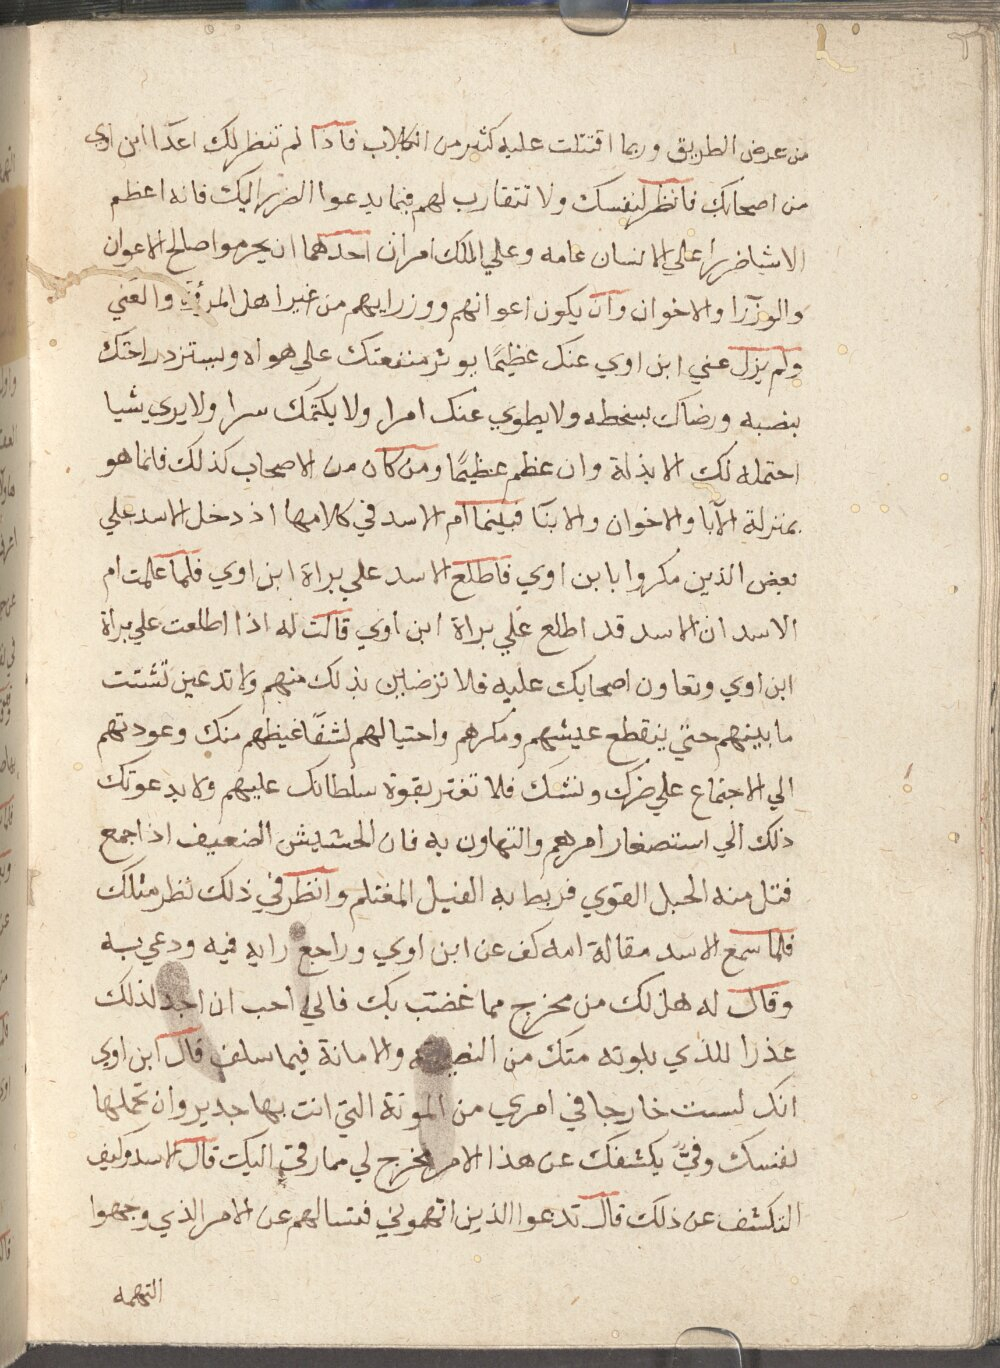 من عرض الطريق وربما اقتتلت عليه كثير من الكلاب فاذا لم تنظر لك اعدا ابن اوي
من اصحابك فانظر لنفسك ولا تتقارب لهم فيما يدعوا الضرر اليك فانه اعظم
الاشيا ضررا علي الانسان عامه وعلي الملك امران احدهما ان يحرموا صالح الاعوان
والوزرا والاخوان وان يكون اعوانهم ووزرايهم من غير اهل المروة والغني
ولم يزل عني ابن اوي عنك عظيمًا يوثر منفعتك علي هواه ويستزد راحتك
بنصبه ورضاك بسخطه ولا يطوي عنك امرا ولا يكتمك سرا ولا يري شيا
احتمله لك الا بذلة وان عظم عظيمًا ومن كان من الاصحاب كذلك فانما هو
بمنزلة الابا والاخوان والابنا فبينما ام الاسد في كلامها اذ دخل الاسد علي
بعض الذين مكروا بابن اوي فاطلع الاسد علي براة ابن اوي فلما علمت ام
الاسد ان الاسد قد اطلع علي براة ابن اوي قالت له اذا اطلعت علي براة
ابن اوي وتعاون اصحابك عليه فلا ترضاين بذلك منهم ولا تدعين تشتت
ما بينهم حتي ينقطع عيشهم ومكرهم واحتيالهم لشفا غيظهم منك وعودتهم
الي الاجتماع علي ضرك ونشك فلا تغتر بقوة سلطانك عليهم ولا يدعوتك
ذلك الي استصغار امرهم والتهاون به فان الحشيش الضعيف اذا جمع
فتل منه الحبل القوي فربط به الفيل المغتلم وانظر في ذلك نظر مثلك
فلما سمع الاسد مقالة امه كف عن ابن اوي وراجع رايه فيه ودعي به
وقال له هل لك من مخرج مما غضت بك فاني احب ان اجد لذلك
عذرا للذي بلوته منك من النصيحة والامانة فيما سلف قال ابن اوي
انك لست خارجا في امري من المونة التي انت بها جدير وان تحملها
لنفسك وفيّ يكشفك عن هذا الامر مخرج لي مما رقي اليك قال الاسد وكيف
التكشف عن ذلك قال تدعوا الذين اتهموني فتسالهم عن الامر الذي وجهوا
التهمه